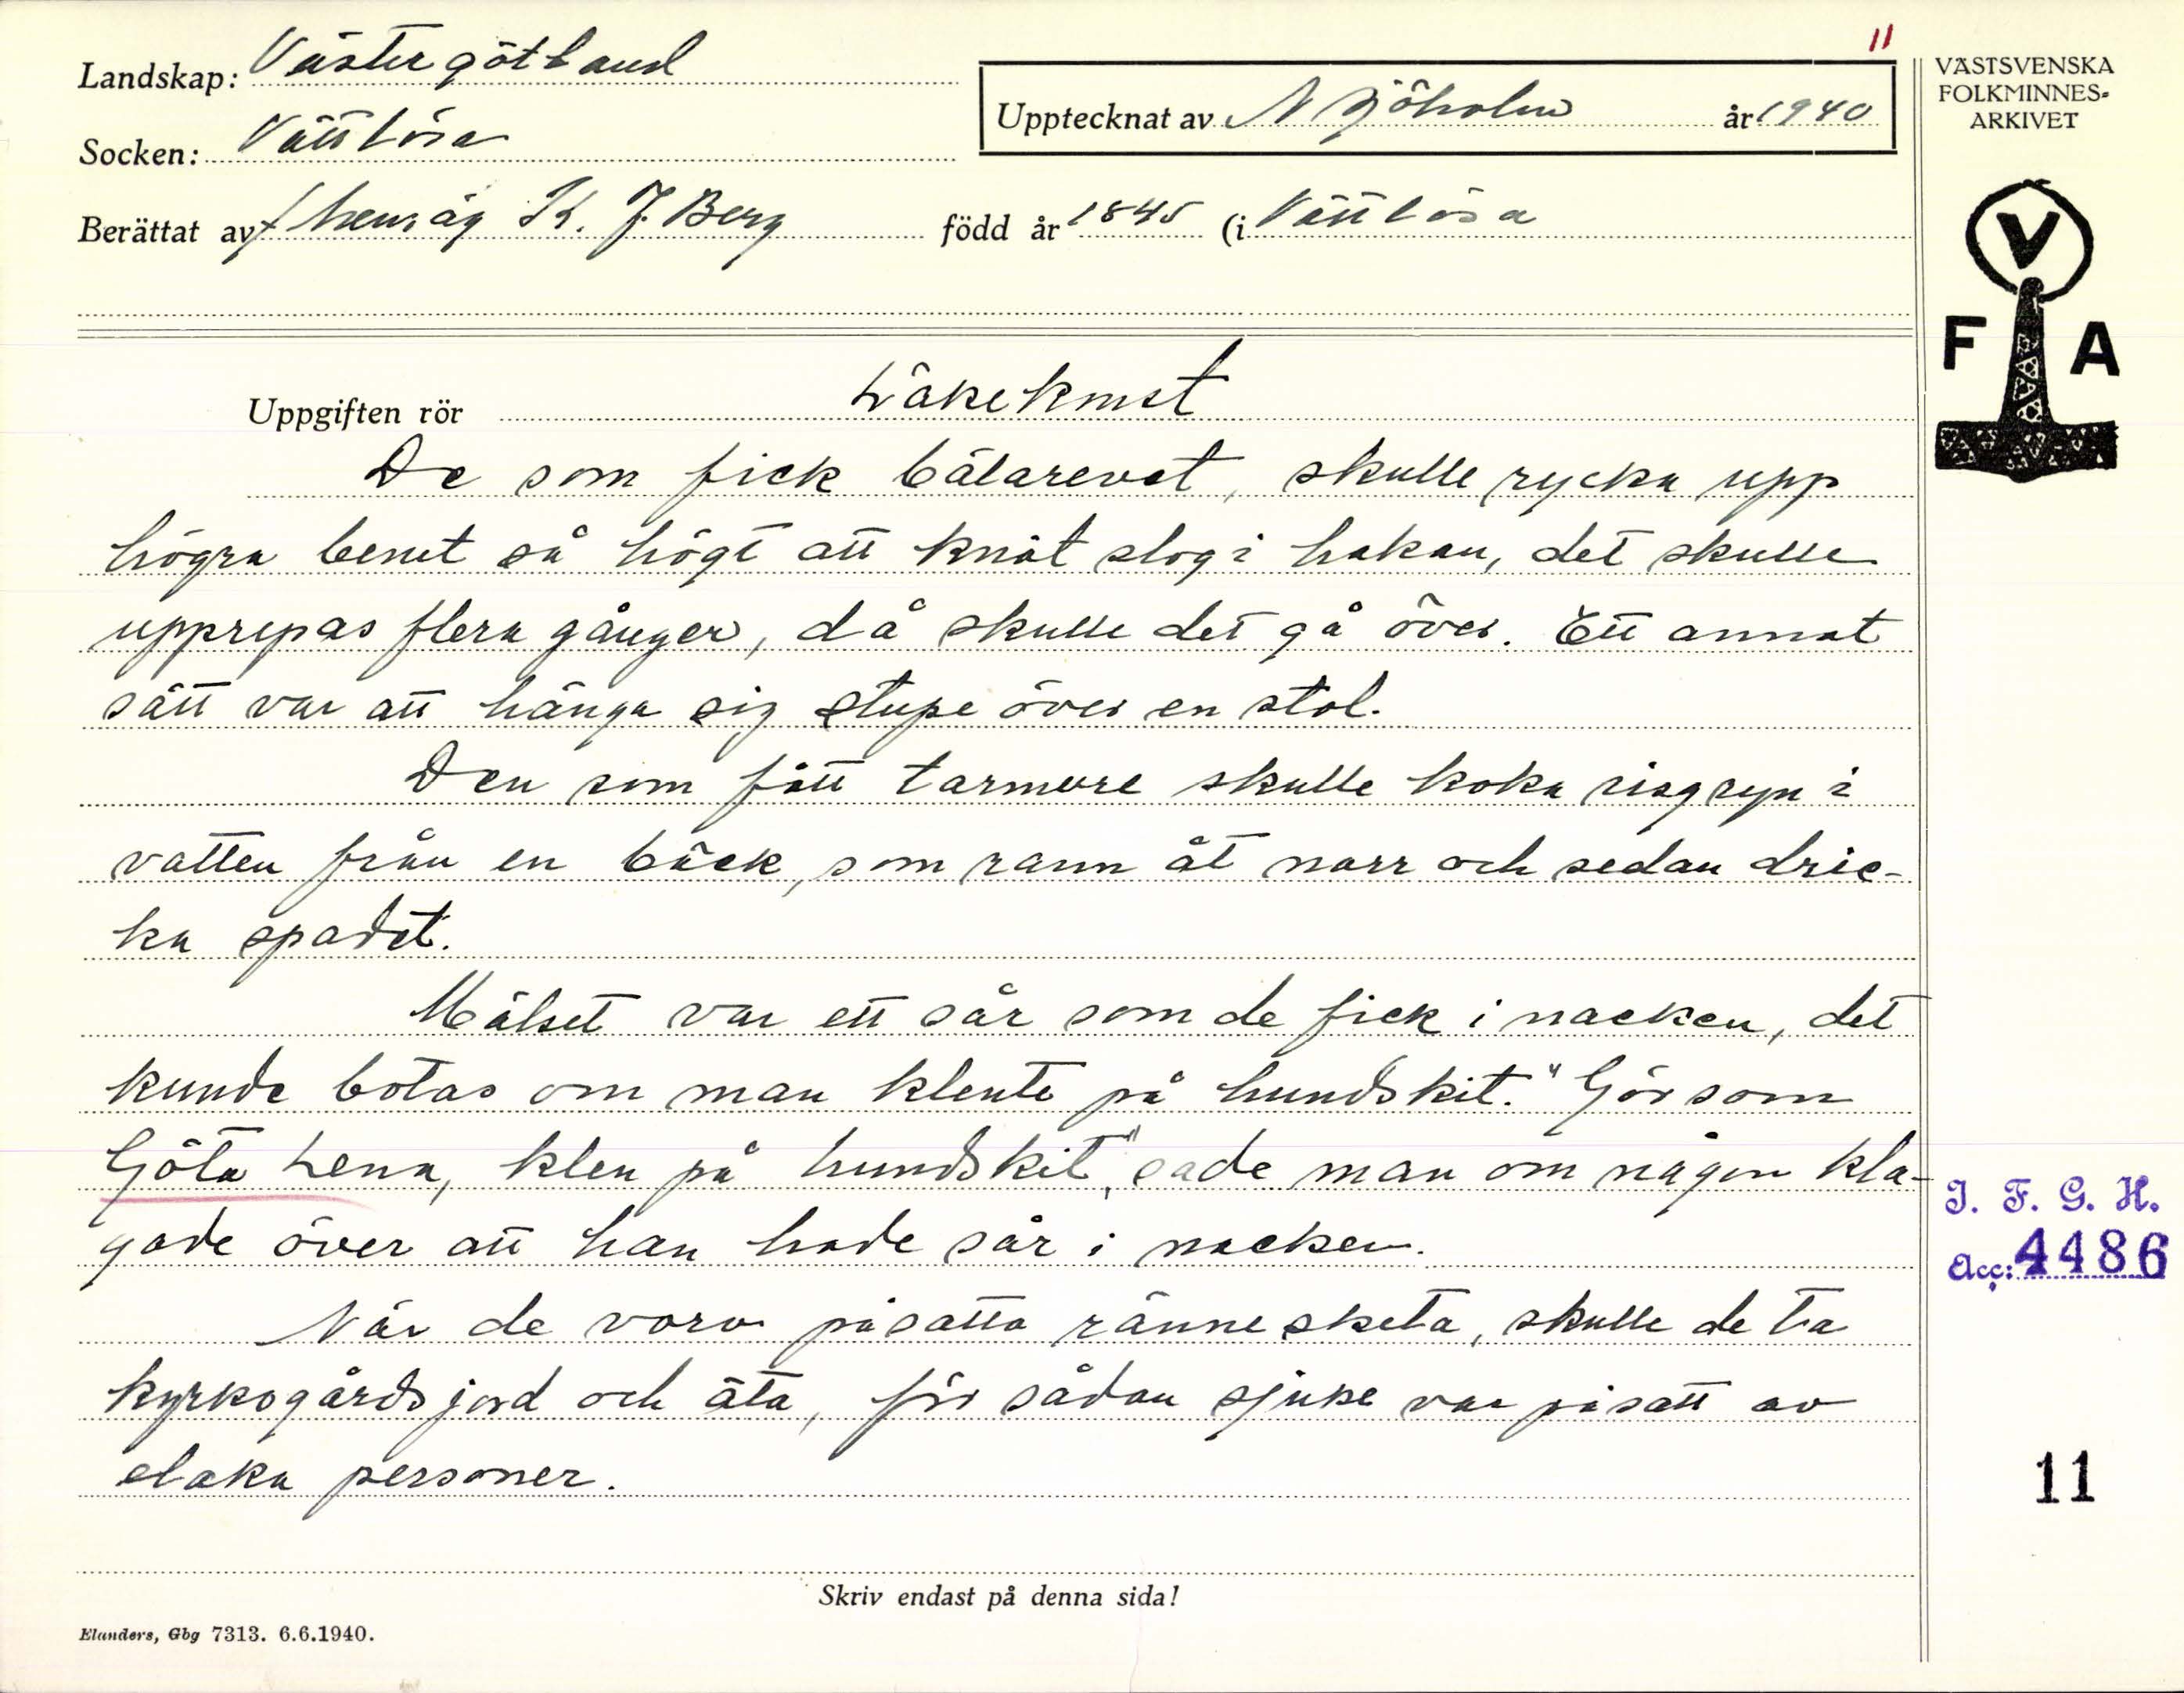 11
Landskap: Västergötland
Socken: Vättlösa
Upptecknat av N Sjöholm år 1940
Berättat av f hemäg K. J. Berg född år 1845 (i Vättlösa
VÄSTSVENSKA
FOLKMINNES-
ARKIVET
V
F A
Uppgiften rör Läkekonst
De som fick bälarevet, skulle rycka upp
högra benet så högt att knät slog i hakan, det skulle
upprepas flera gånger, då skulle det gå över. Ett annat
sätt var att hänga sig stupe över en stol.
Den som fått tarmvre skulle koka risgryn i
vatten från en bäck, som rann åt norr och sedan dric-
ka spadet.
Mälset var ett sår som de fick i nacken, det
kunde botas om man klente på hundskit. "Gör som
Göta Lena, klen på hundskit", sade man om någon kla-
gade över att han hade sår i nacken.
När de voro påsatta rännesketa, skulle de ta
kyrkogårdsjord och äta, för sådan sjuke var påsatt av
elaka personer.
I. F. G. H.
Acc: 4486
11
Skriv endast på denna sida!
Elanders, Gbg 7313. 6.6.1940.